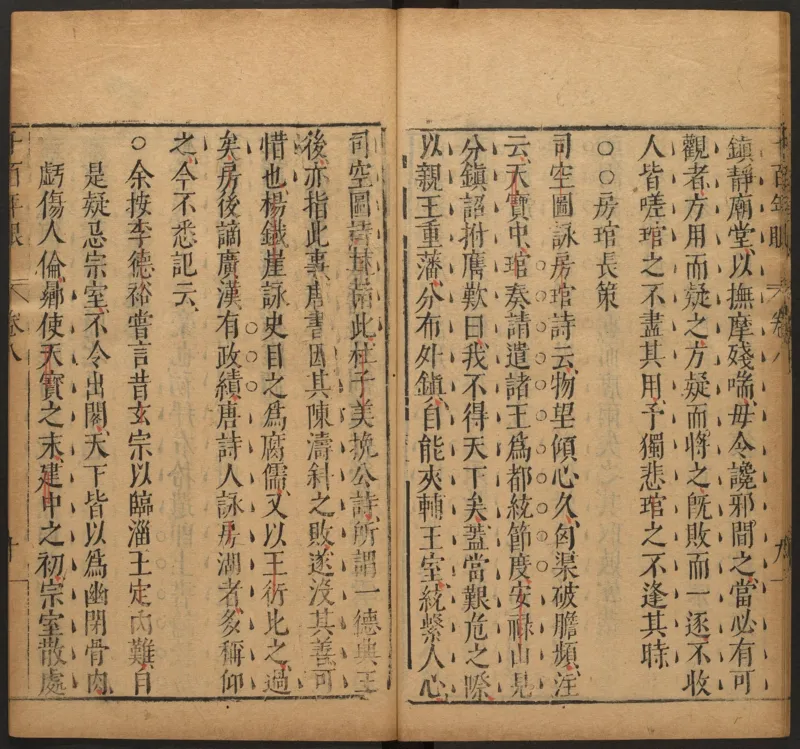 鎮靜廟堂以撫摩殘喘毋令讒邪間之當必有可
觀者方用而疑之方疑而將之旣敗而一逐不收
人皆嗟琯之不盡其用予獨悲琯之不逢其時
○○房琯長策
司空圖詠房琯詩云物望傾心久匈渠破膽頻注
云天寶中琯奏請遣諸王爲都統節度安祿山見
分鎮詔拊膺歎曰我不得天下矣蓋當艱危之際
以親王重藩分布外鎮自能夾輔王室統繫人心
司空圖詩其指此杜子美挽公詩所謂一德興王
後亦指此事唐書因其陳濤斜之敗遂沒其善可
惜也楊鐵崖詠史目之爲腐儒又以王衍比之過
矣房後謫廣漢有政績唐詩人詠房湖者多稱仰
之今不悉記云
○余按李德裕嘗言昔玄宗以臨淄王定內難自
是疑忌宗室不令出閣天下皆以爲幽閉骨肉
虧傷人倫曏使天寶之末建中之初宗室散處
千百年眼
卷八
九
千百年眼
卷八
十